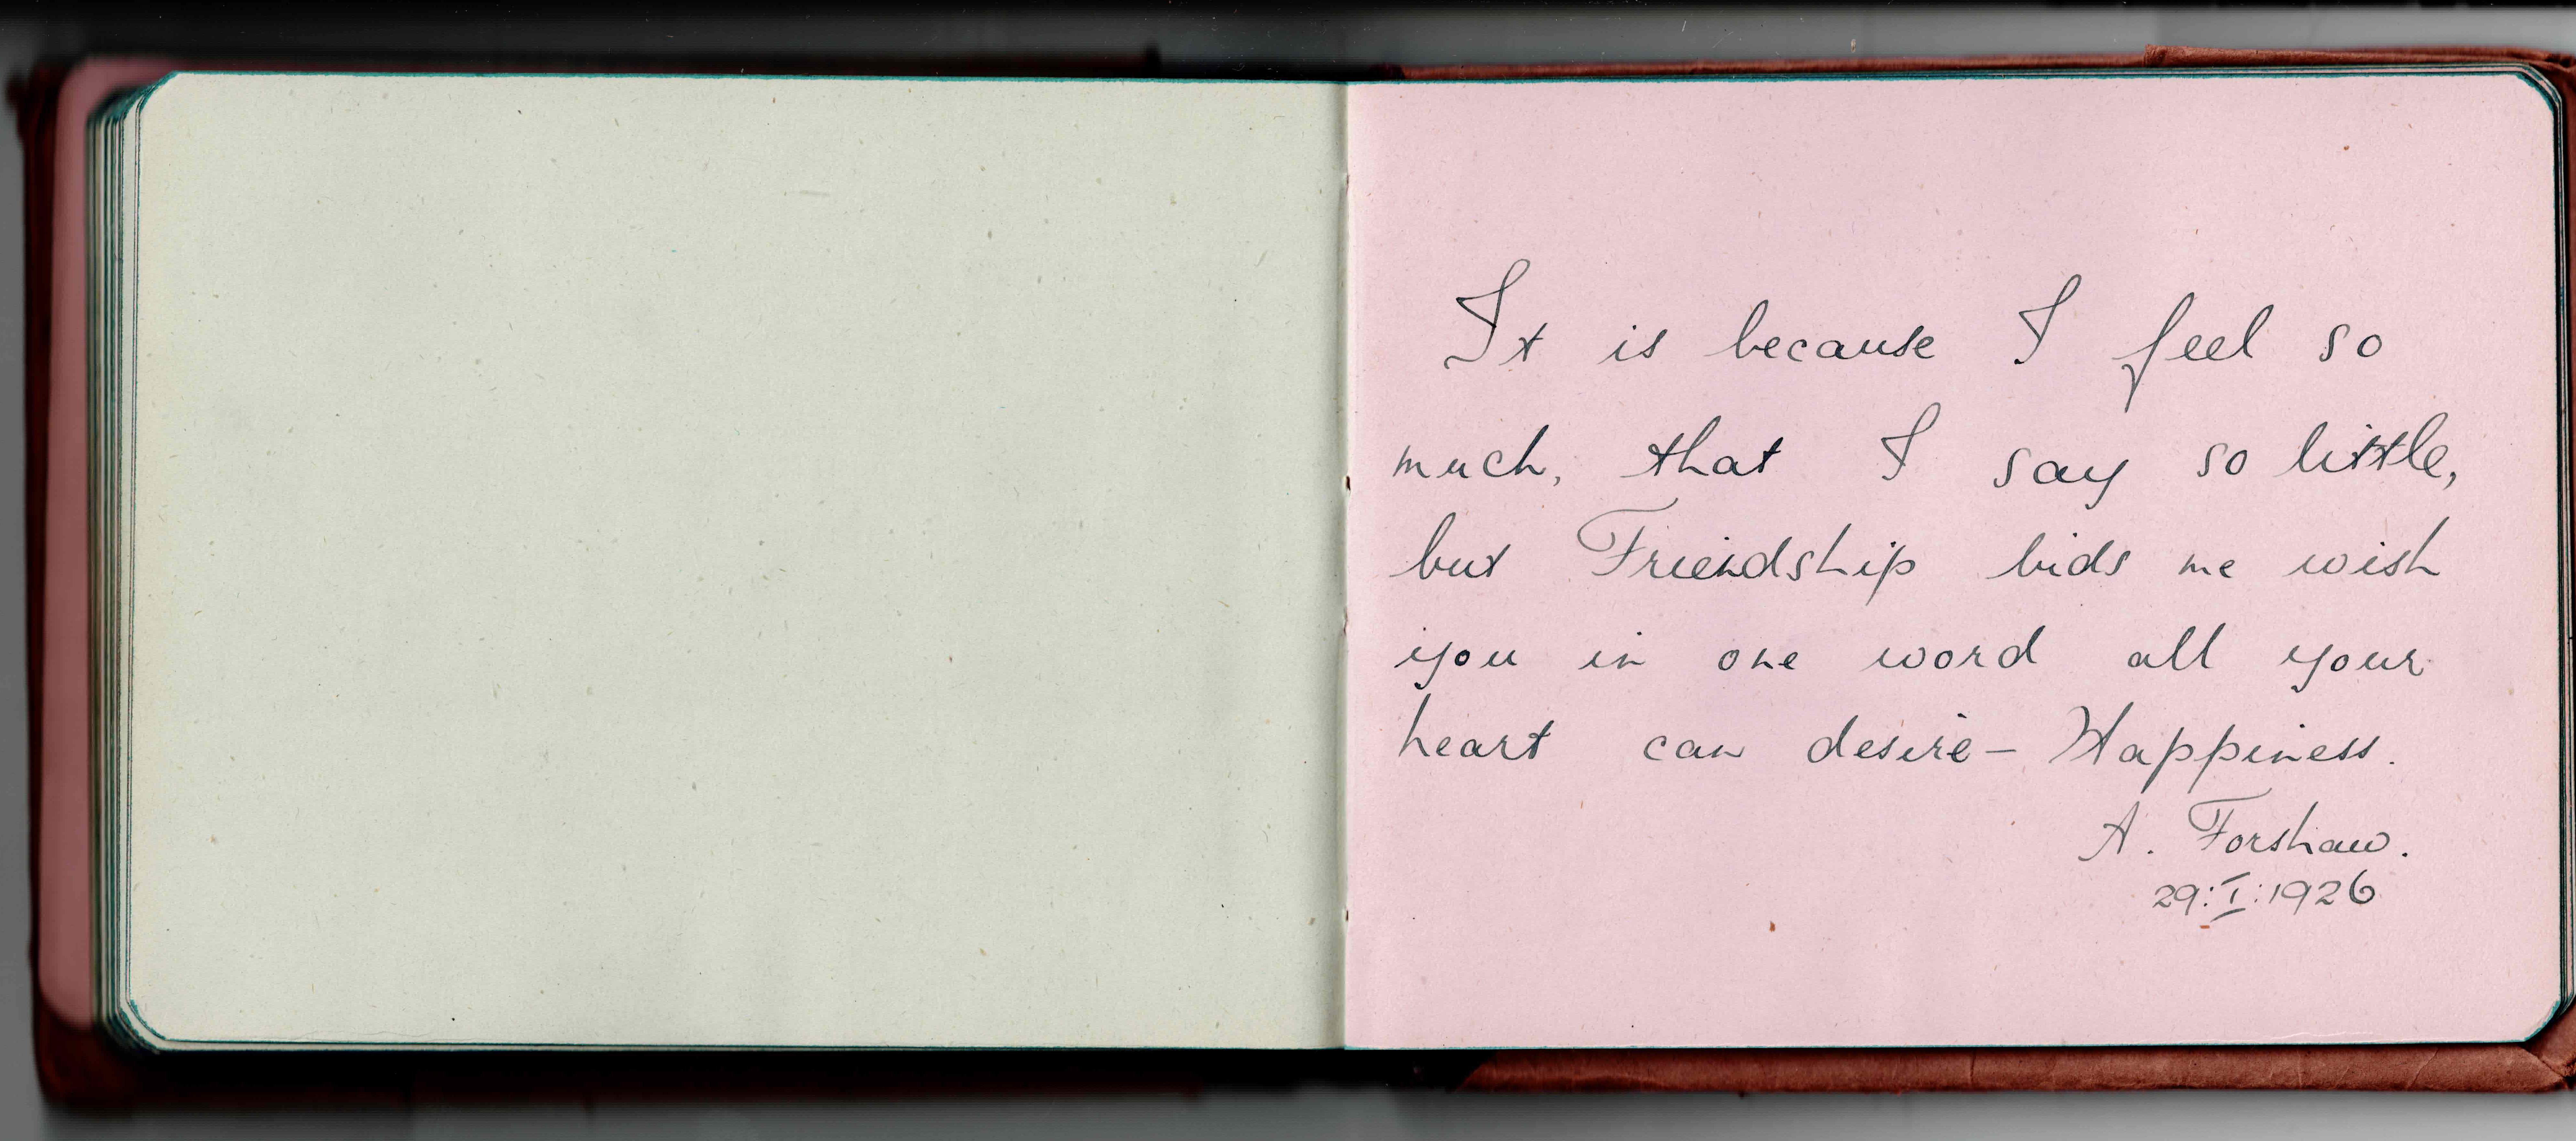 It is because I feel so
much, that I say so little,
but Friendship bids me wish
you in one word all your
heart can desire – Happiness.
A. Forshaw.
29:I:1926